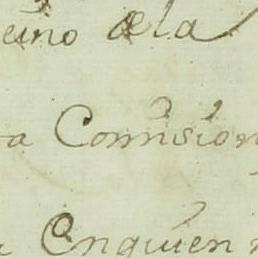 eino dela
a Comision
Enquien